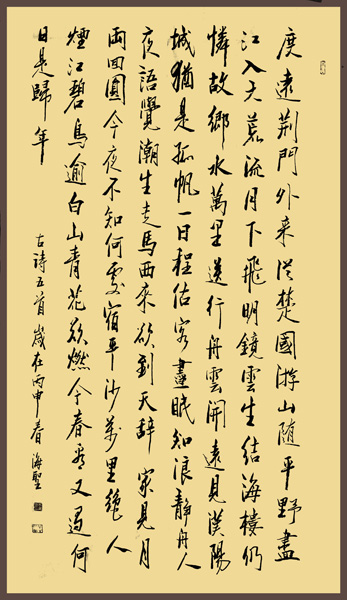 度遠荆門外来從楚國游山随平野盡
江入大荒流月下飛明鏡雲生结海樓仍
憐故鄉水萬里送行舟雲開遠見漢陽
城猶是孤帆一日程估客晝眠知浪靜舟人
夜語覺潮生走馬西來欲到天辞家見月
兩回圓今夜不知何處宿平沙萬里絶人
煙江碧鳥逾白山青花欲燃今春看又過何
日是歸年
古詩五首歲在丙申春海聖